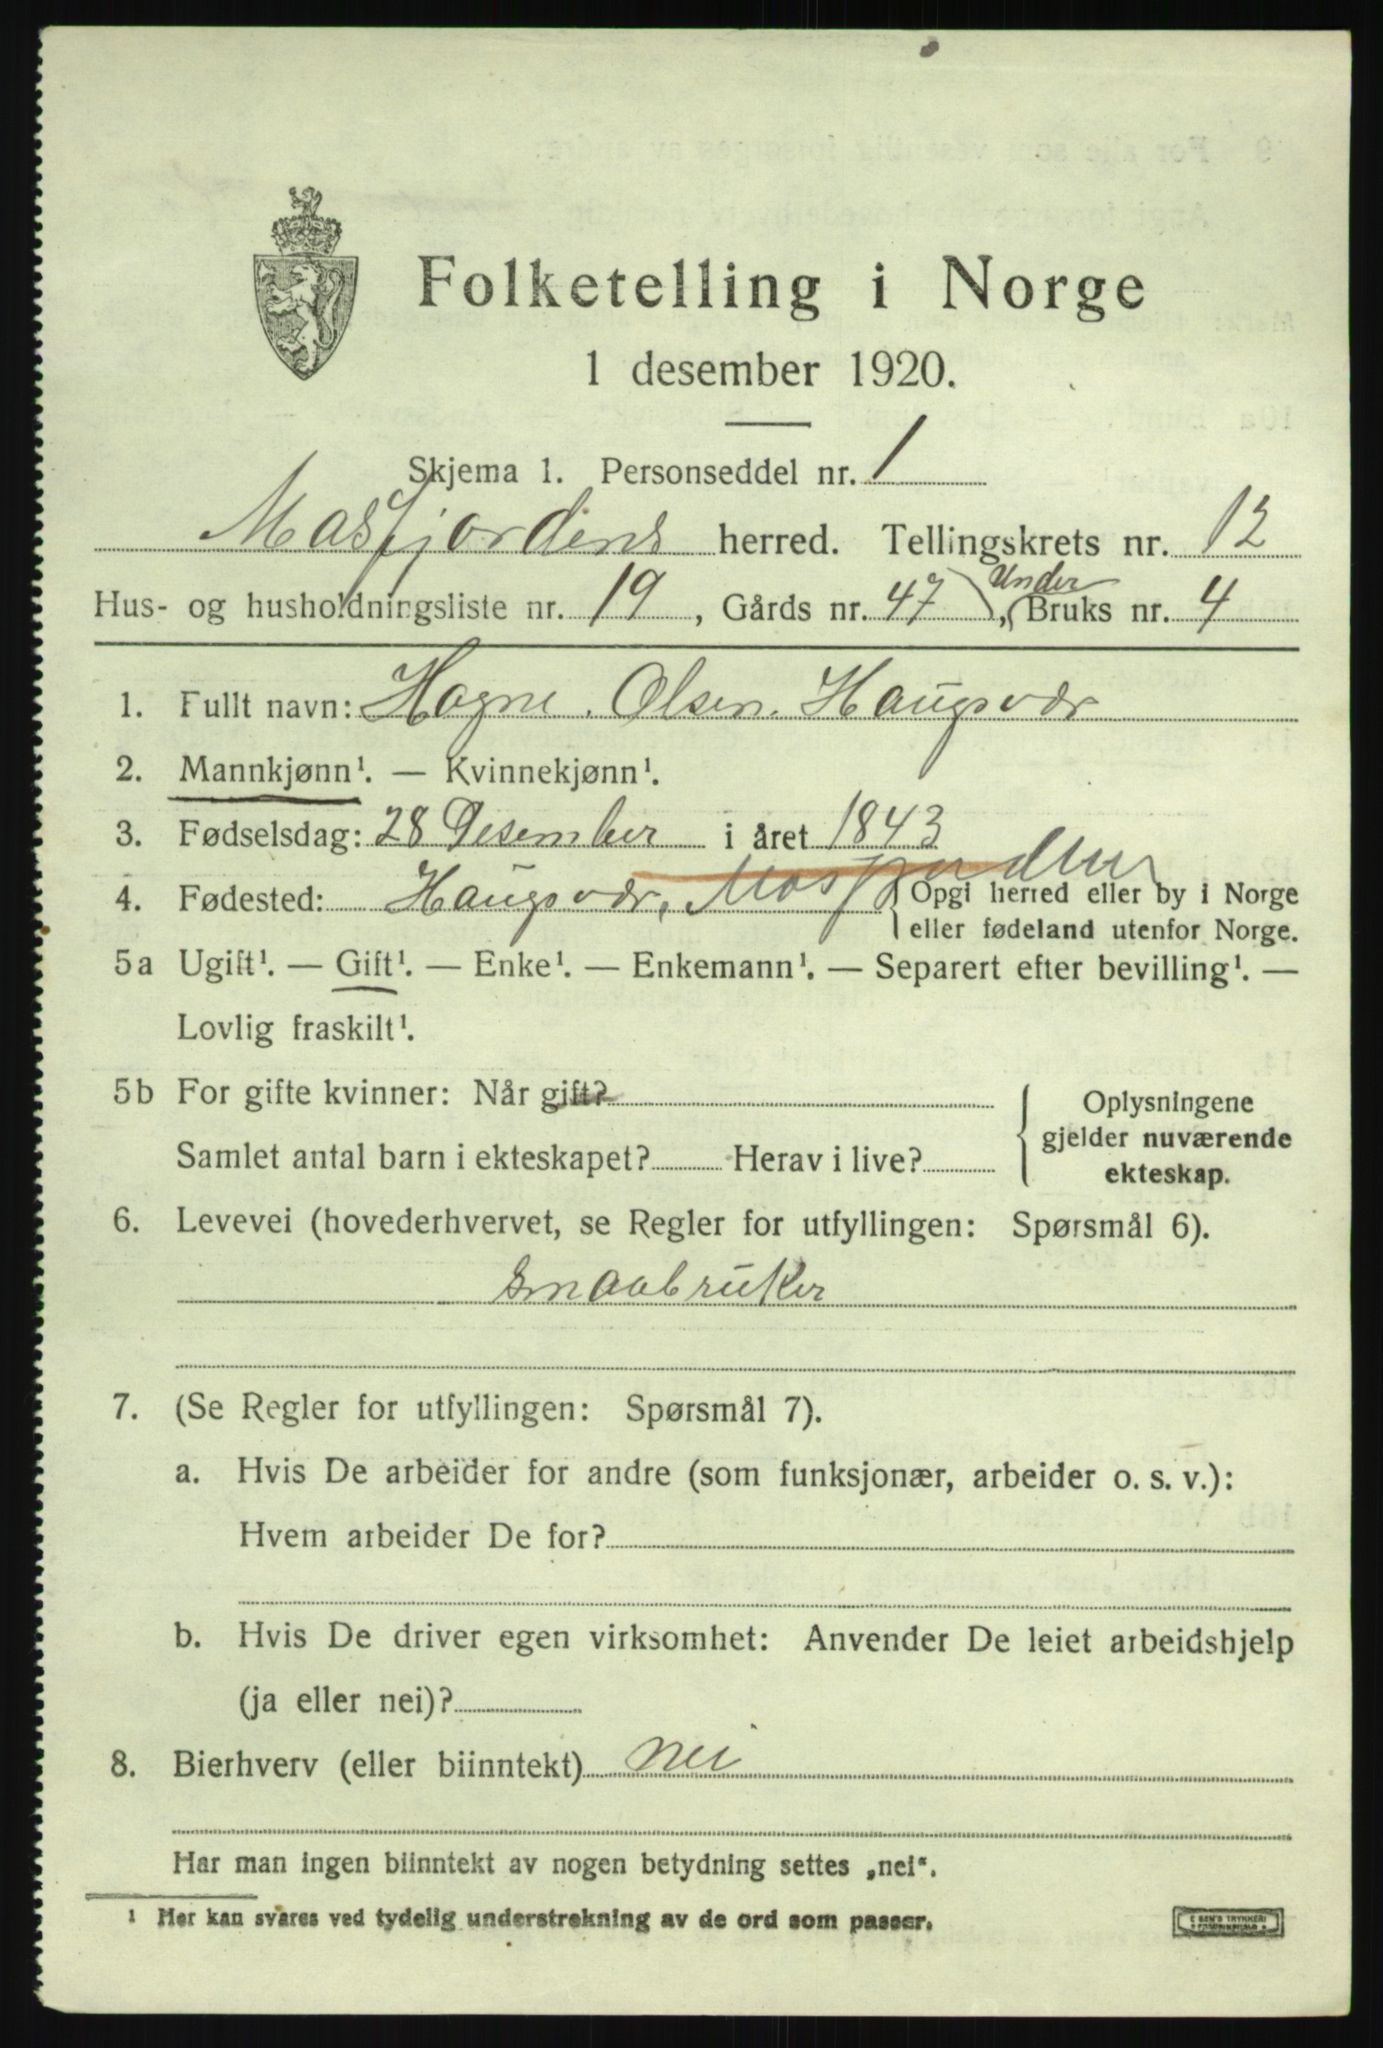 Folketelling i Norge
1 desember 1920.
Skjema 1. Personseddel nr. 1
Masfjordens herred. Tellingskrets nr. 12
Hus- og husholdningsliste nr. 19, Gårds nr. 47), (Under Bruks nr. 4
1. Fullt navn: Hogne. Olsen. Haugsvær
2. Mannkjønn¹. — Kvinnekjønn¹.
3. Fødselsdag: 28 Desember i året 1843
4. Fødested: Haugsvær, Masfjorden { Opgi herred eller by i Norge
eller fødeland utenfor Norge.
5a Ugift¹. — Gift¹. — Enke¹. — Enkemann¹. — Separert efter bevilling¹. —
Lovlig fraskilt¹.
5b For gifte kvinner: Når gift?
Samlet antal barn i ekteskapet? Herav i live?
{ Oplysningene
gjelder nuværende
ekteskap.
6. Levevei (hovederhvervet, se Regler for utfyllingen: Spørsmål 6).
smaabruker
7. (Se Regler for utfyllingen: Spørsmål 7).
a. Hvis De arbeider for andre (som funksjonær, arbeider o. s. v.):
Hvem arbeider De for?
b. Hvis De driver egen virksomhet: Anvender De leiet arbeidshjelp
(ja eller nei)?
8. Bierhverv (eller biinntekt) nei
Har man ingen biinntekt av nogen betydning settes „nei“.
¹ Her kan svares ved tydelig understrekning av de ord som passer.